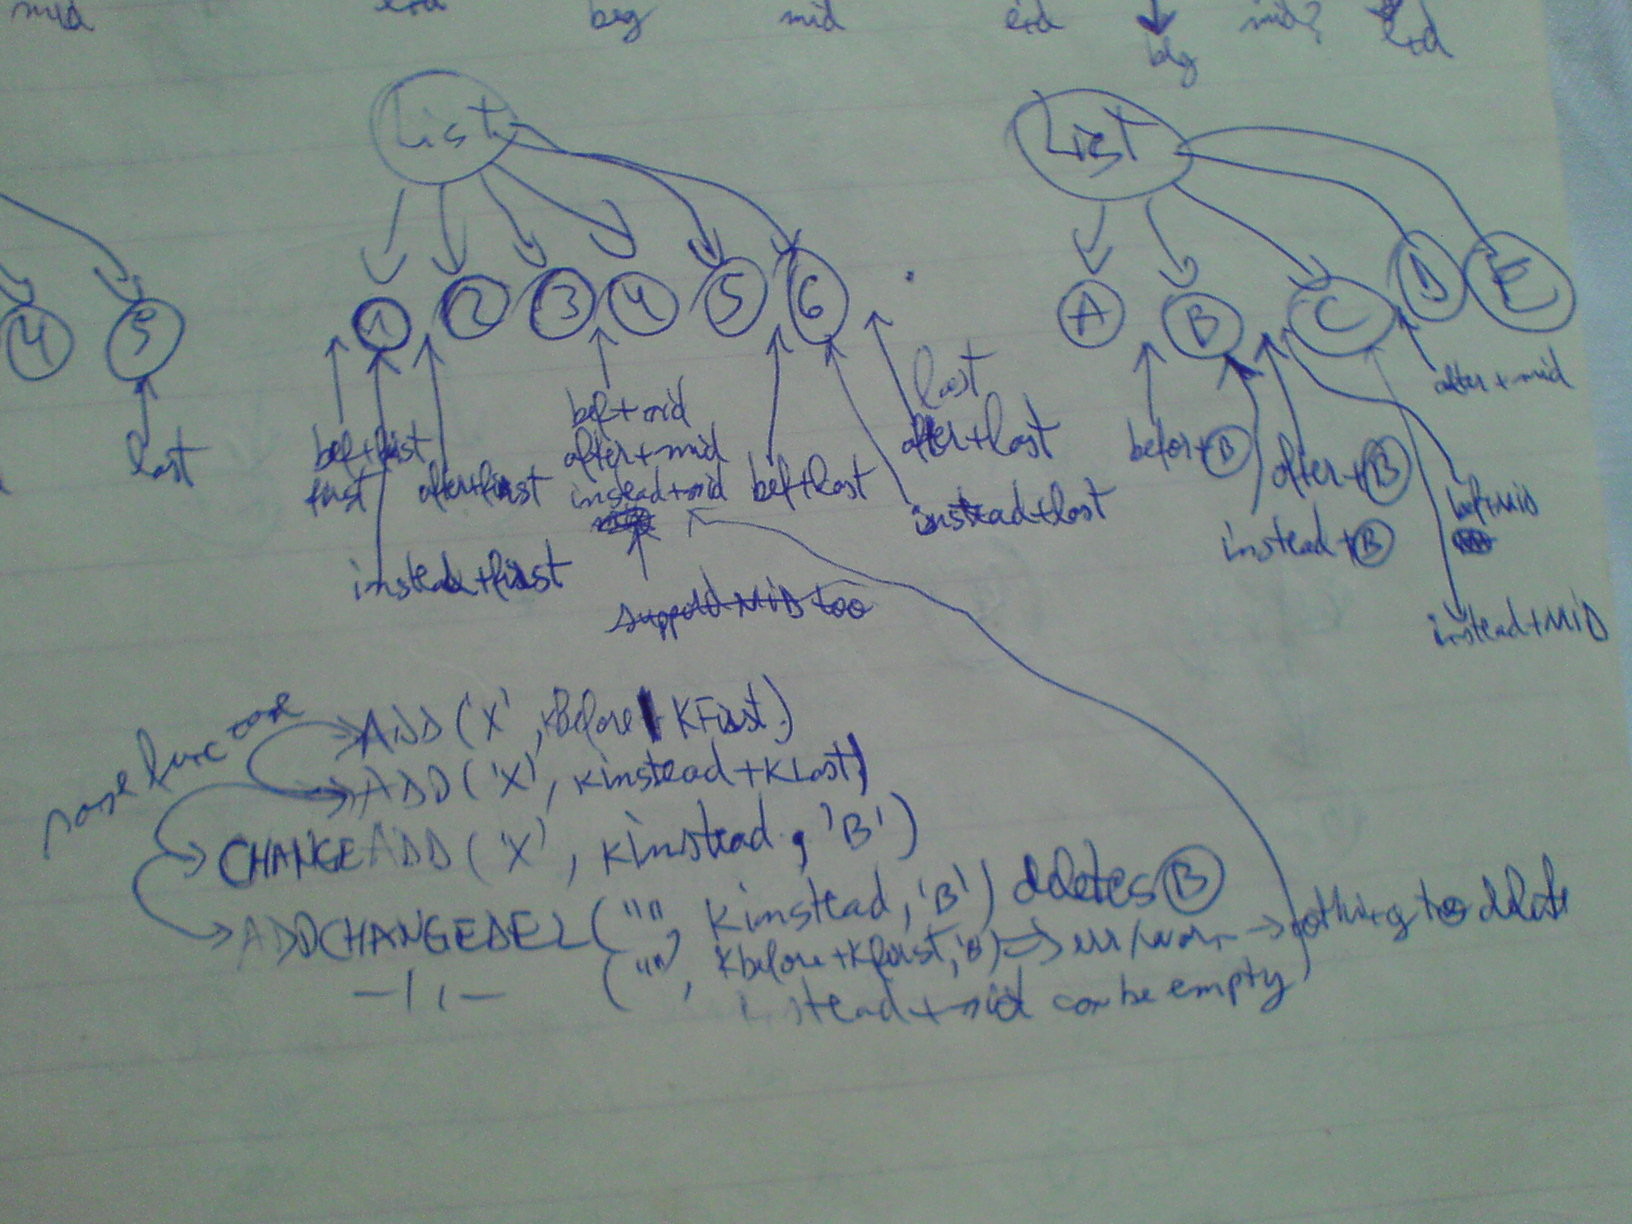 mid end beg mid end beg mid? End
List List
1 2 3 4 5 6 A B C D E
4 5
last
bef+first
first
after+first
instead+first
bef+mid
after+mid
instead+mid
support MID too
bef+last
last
after+last
instead+last
before+B
after+B
instead+B
after+mid
bef+MID
instead+MID
ADD('X', kBefore+KFirst)
ADD('X', kinstead+KLast)
CHANGEADD('X', kinstead, 'B')
ADDCHANGEDEL("", kinstead, 'B') deletes B
—11— ("", kbefore+kfirst, 'B') => err/warn -> nothing to delete
instead+mid can be empty